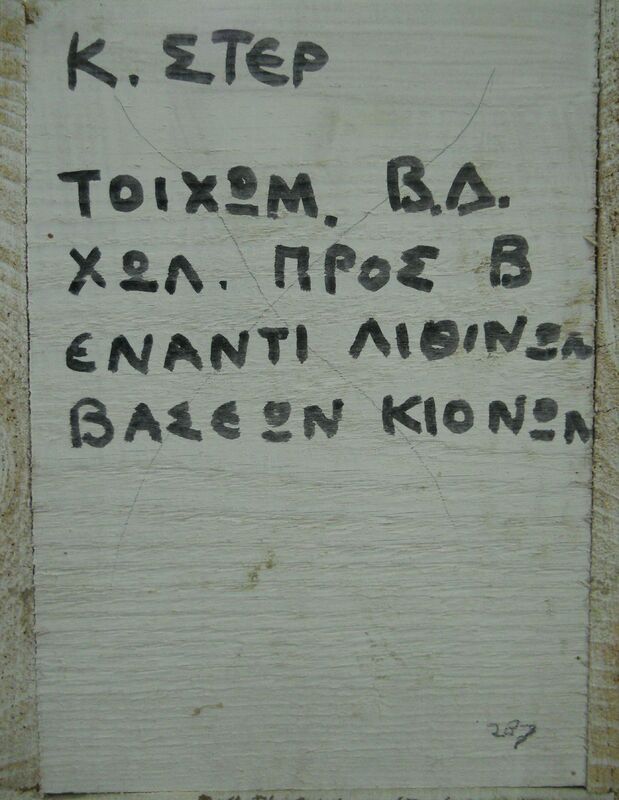 Κ. ΣΤΕΡ
ΤΟΙΧΩΜ. Β.Δ.
ΧΩΛ. ΠΡΟΣ Β
ΕΝΑΝΤΙ ΛΙΘΙΝΩΝ
ΒΑΣΕΩΝ ΚΙΟΝΩΝ
287